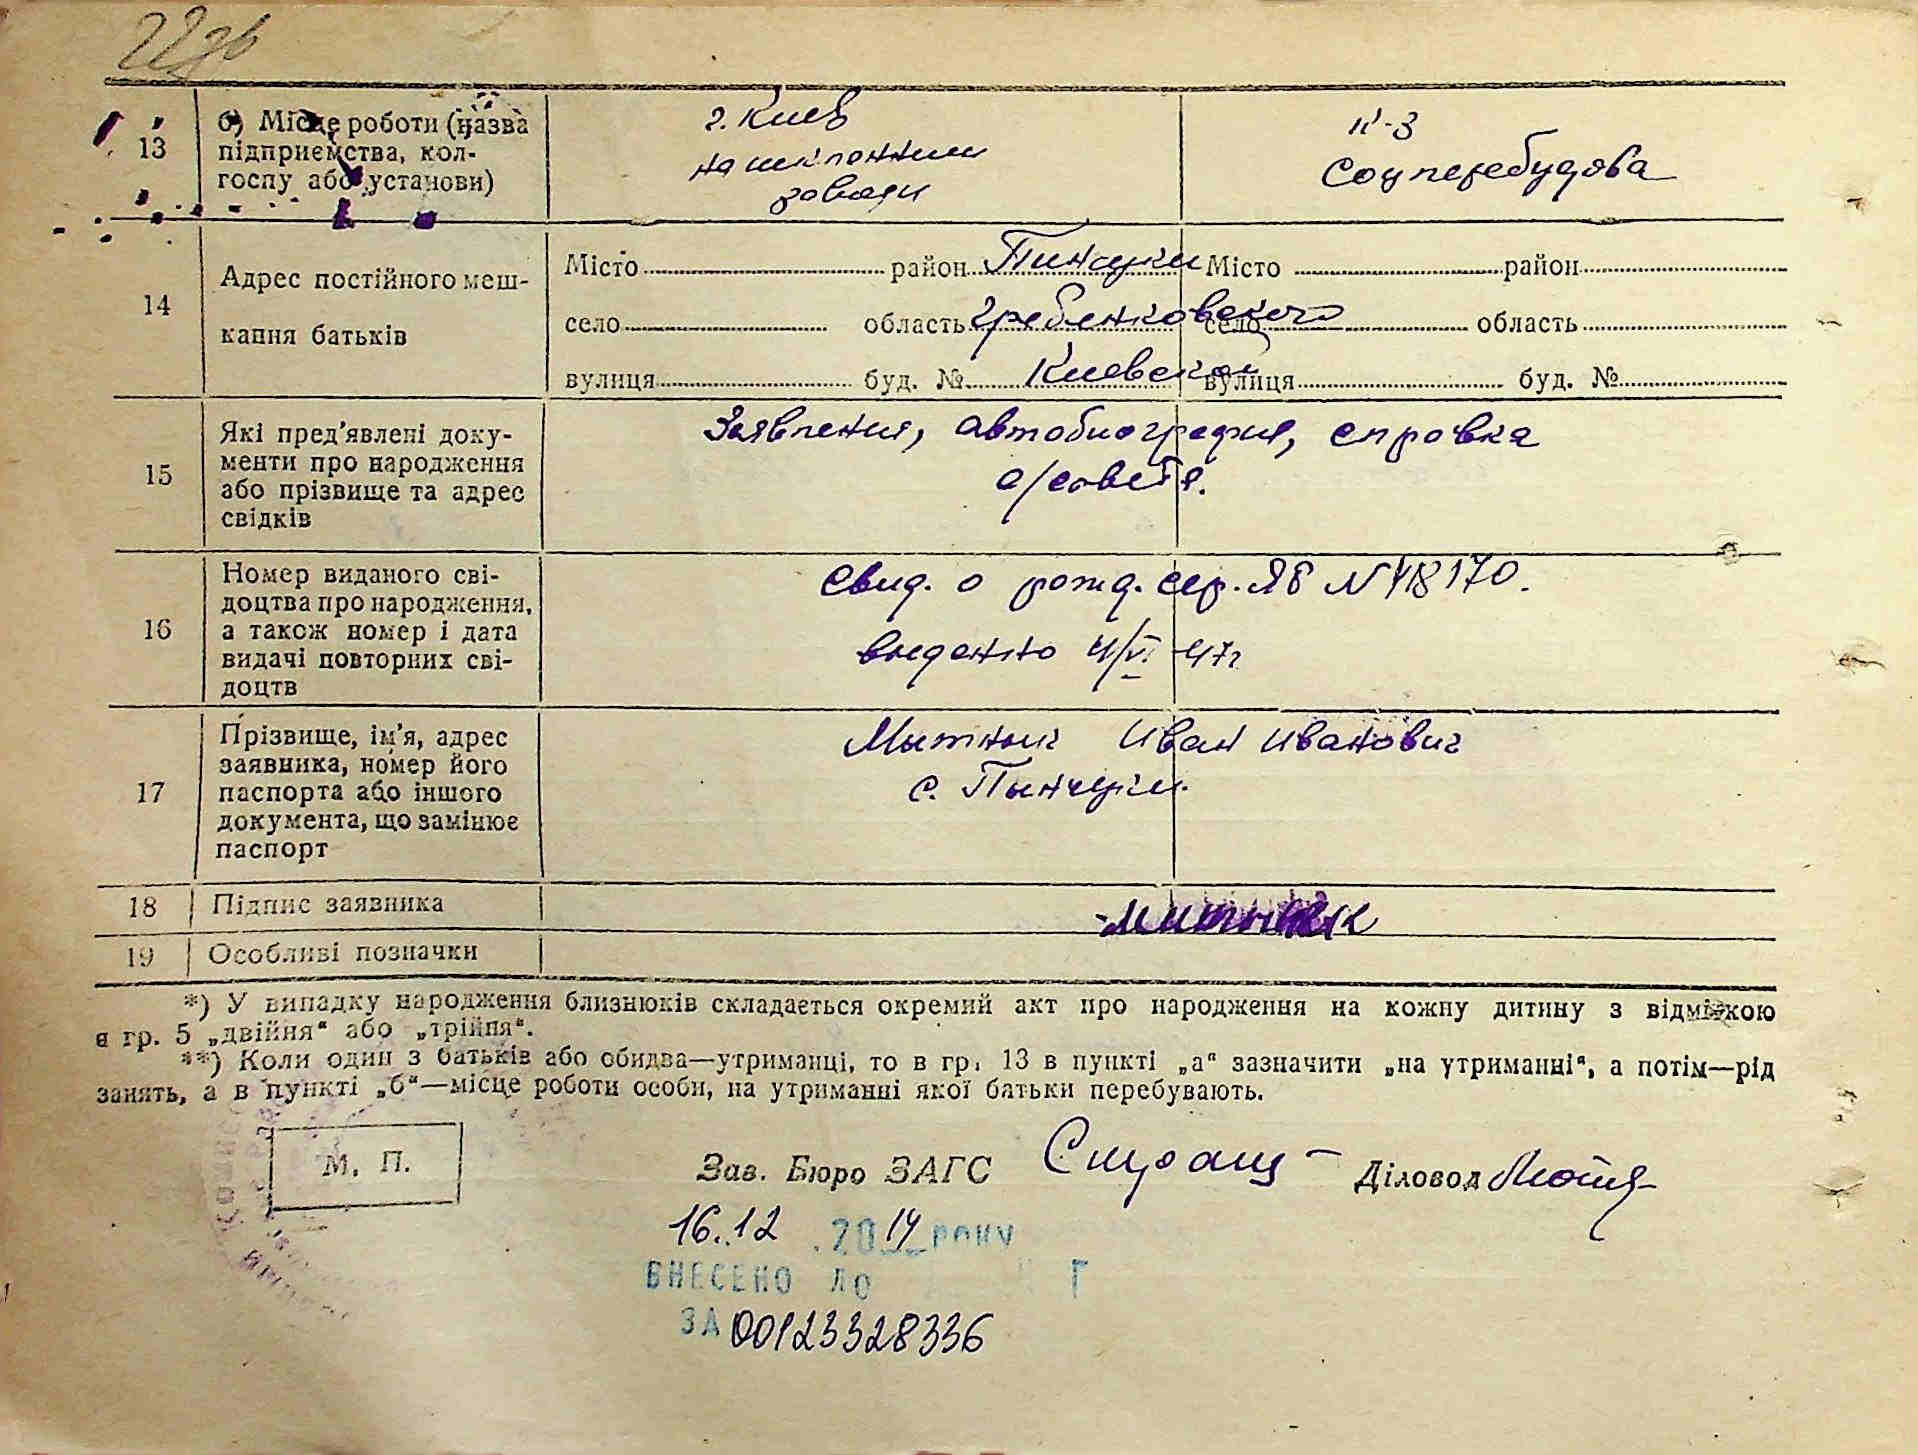 13
б) Місце роботи (назва
підприємства, кол-
госпу або установи)
г. Киев
на
заводи
к-з
Соцперебудова
14
Адрес постійного меш-
кання батьків
Місто район Пинчуки Місто район
село область Гребенковского село область
вулиця буд. № Киевской вулиця буд. №
15
Які пред'явлені доку-
менти про народження
або прізвище та адрес
свідків
Заявления, автобиография, справка
с/совета.
16
Номер виданого сві-
доцтва про народження,
а також номер і дата
видачі повторних сві-
доцтв
Свид. о рожд. сер. ЯБ N 418170.
выданно 4/VI 47г
17
Прізвище, ім'я, адрес
заявника, номер його
паспорта або іншого
документа, що замінює
паспорт
Мытник Иван Иванович
с. Пынчуки.
18
Підпис заявника
Митник
19
Особливі позначки
*) У випадку народження близнюків складається окремий акт про народження на кожну дитину з відміткою
в гр. 5 „двійня“ або „трійня“.
**) Коли один з батьків або обидва—утриманці, то в гр. 13 в пункті „а“ зазначити „на утриманні“, а потім—рід
занять, а в пункті „б“—місце роботи особи, на утриманні якої батьки перебувають.
М. П.
Зав. Бюро ЗАГС Діловод
16.12.2014 року
ВНЕСЕНО ДО Г
ЗА 00123328336